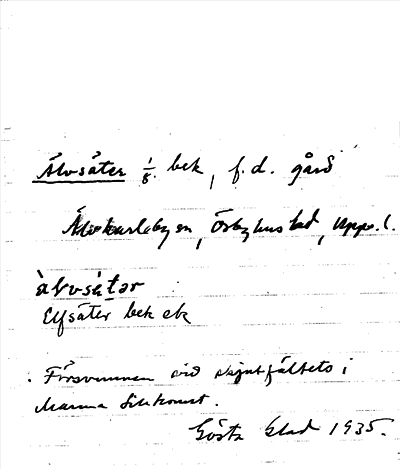 Älvsäter 1/8 bek, f.d. gård
Älvkarleby sn, Örbyhus hd, Upps. l.
àlvsátər
Elfsäter bek ek
Försvunnen vid skjutfältets i
Marma tillkomst.
Gösta Blad 1935.